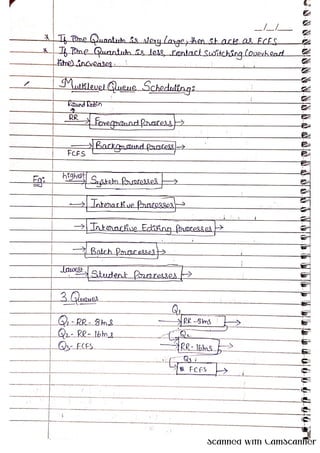 __/__/__
* If Time Quantum is very large, then it acts as FCFS
* If Time Quantum is less, contact switching (overhead
time) increases.
Multilevel Queue Scheduling:
Round Robin
RR → Foreground Process →
FCFS → Background Process →
Eg: highest → System Processes →
→ Interactive Processes →
→ Interactive Editing Processes →
→ Batch Processes →
lowest → Student Processes →
3 Queues
Q1
Q1 - RR - 8ms → RR - 8ms →
Q2
Q2 - RR - 16ms → RR - 16ms →
Q3
Q3 - FCFS → FCFS →
Scanned with CamScanner